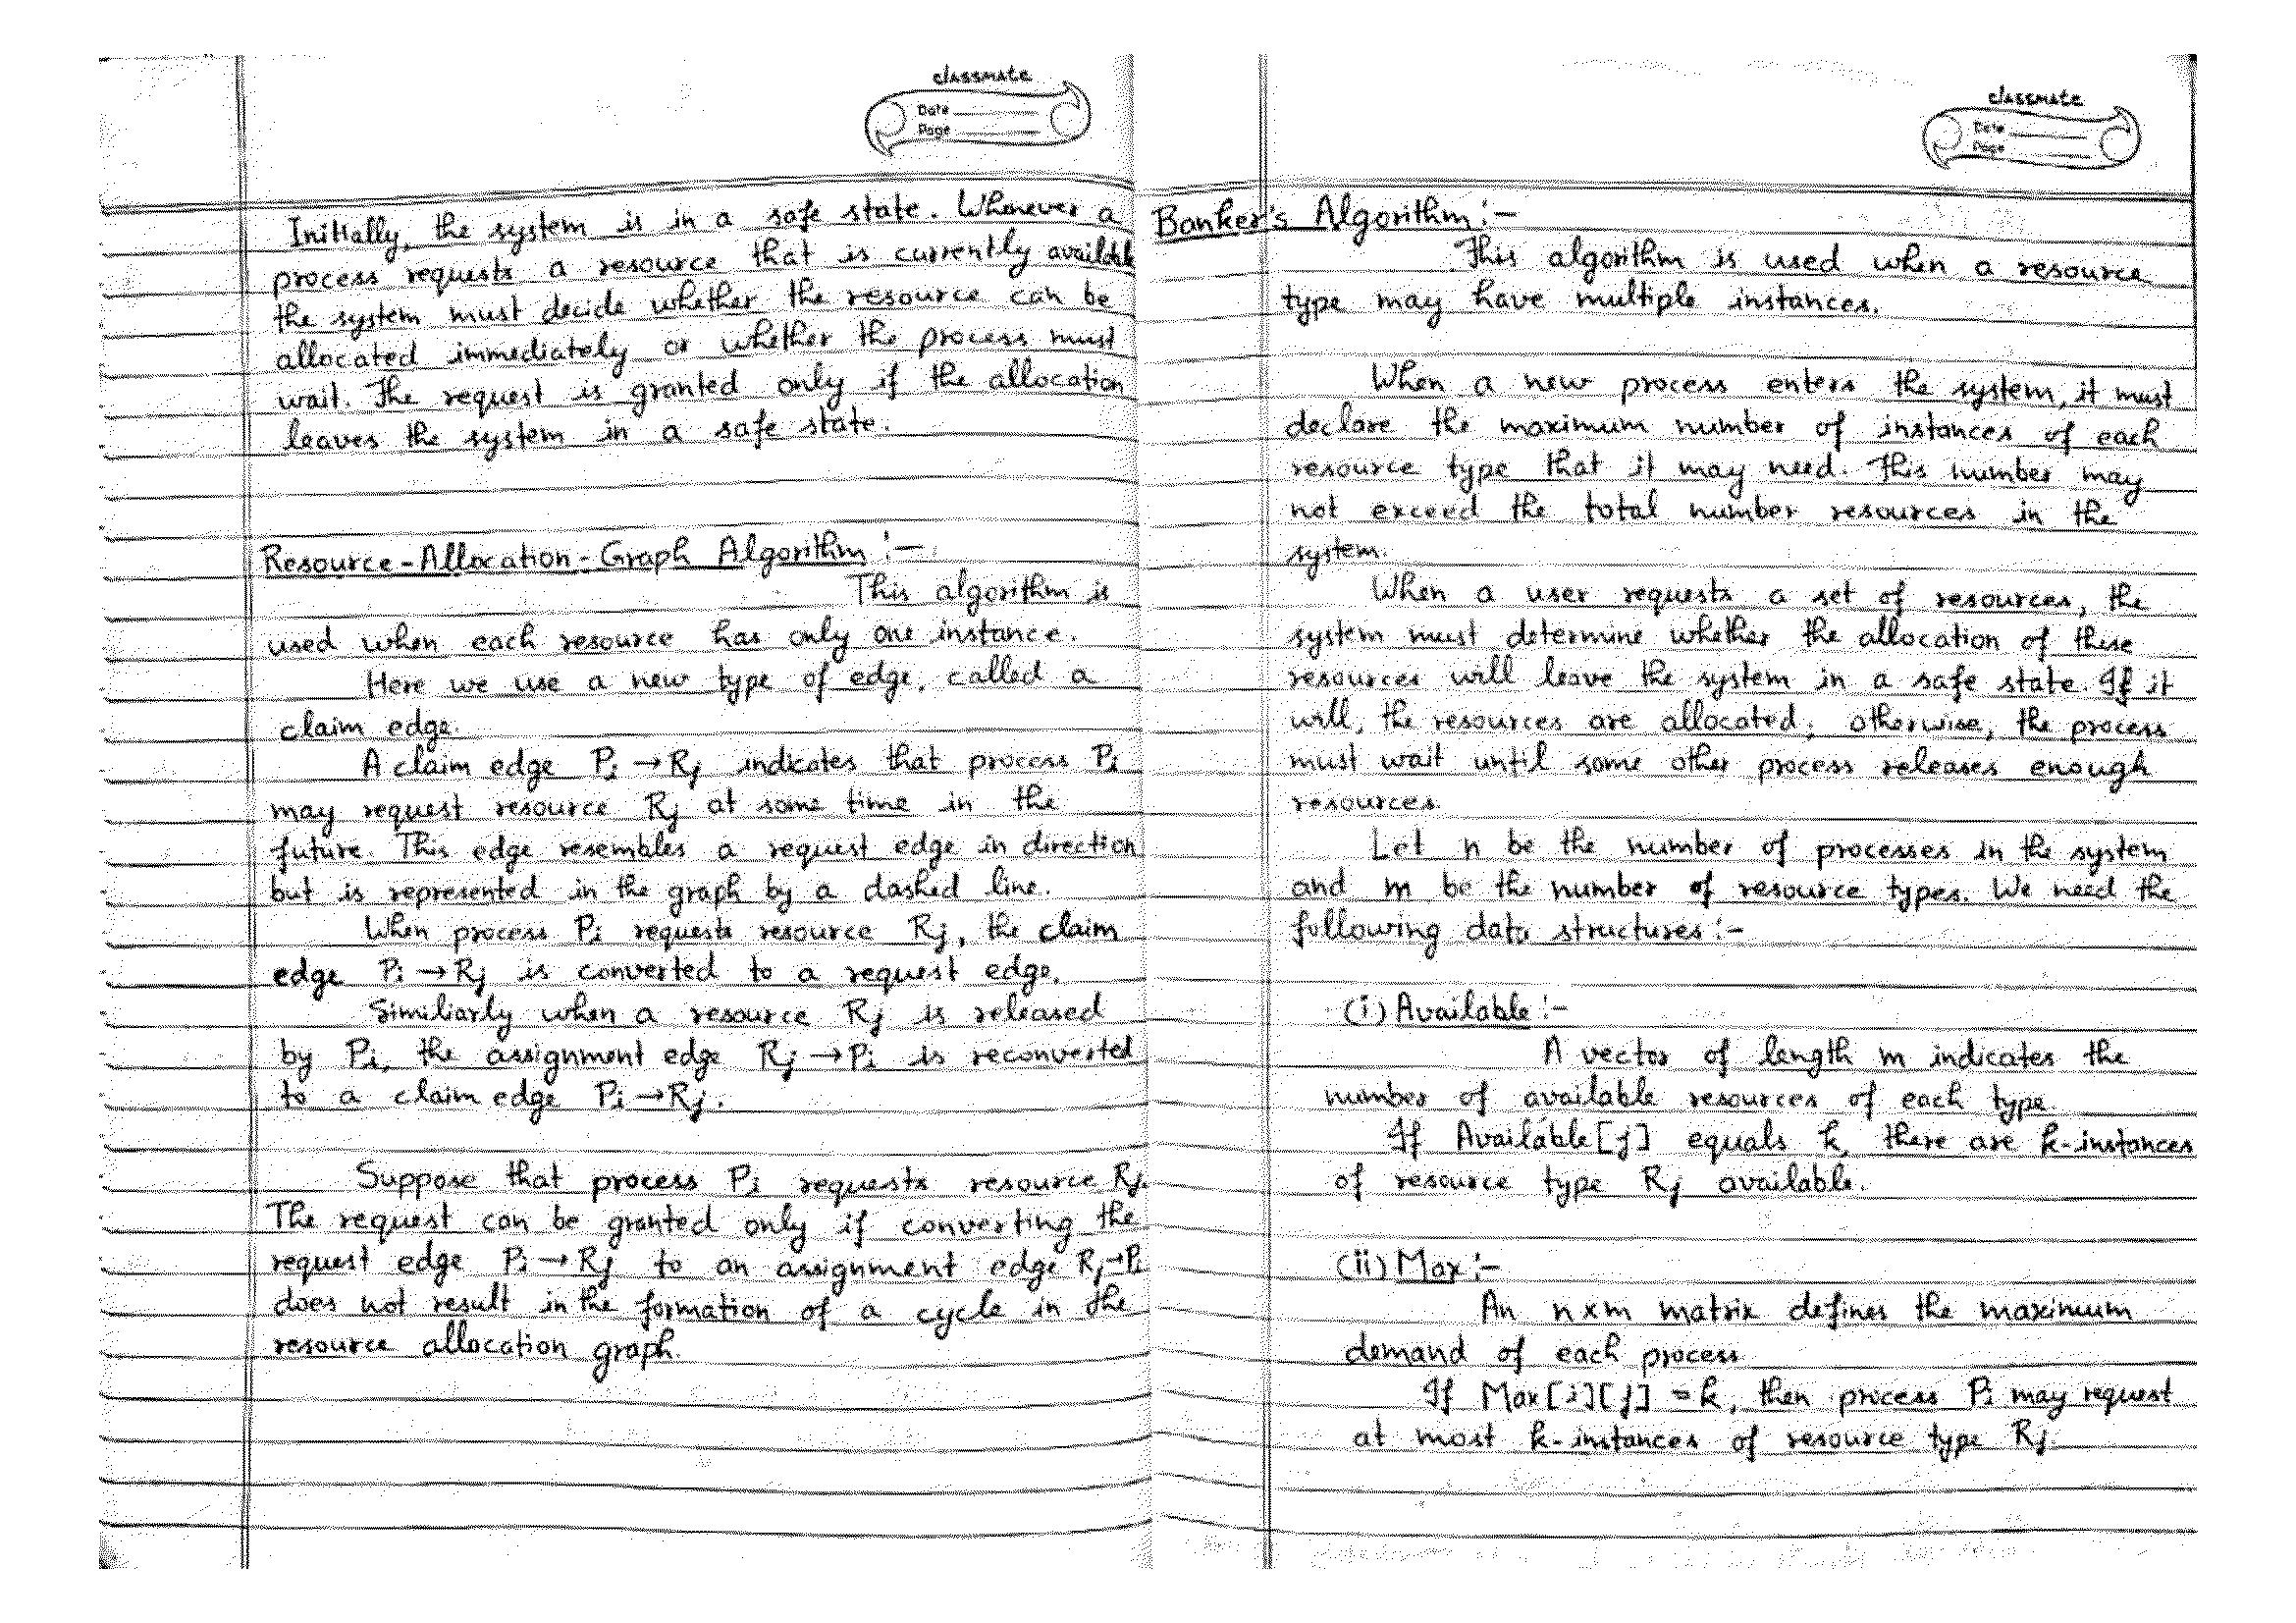 classmate
Date
Page
Initially, the system is in a safe state. Whenever a
process requests a resource that is currently available
the system must decide whether the resource can be
allocated immediately or whether the process must
wait. The request is granted only if the allocation
leaves the system in a safe state.
Resource-Allocation-Graph Algorithm :-
This algorithm is
used when each resource has only one instance.
Here we use a new type of edge, called a
claim edge.
A claim edge Pi → Rj indicates that process Pi
may request resource Rj at some time in the
future. This edge resembles a request edge in direction
but is represented in the graph by a dashed line.
When process Pi requests resource Rj, the claim
edge Pi → Rj is converted to a request edge.
Similiarly when a resource Rj is released
by Pi, the assignment edge Rj → Pi is reconverted
to a claim edge Pi → Rj.
Suppose that process Pi requests resource Rj.
The request can be granted only if converting the
request edge Pi → Rj to an assignment edge Rj → Pi
does not result in the formation of a cycle in the
resource allocation graph.
classmate
Date
Page
Banker's Algorithm :-
This algorithm is used when a resource
type may have multiple instances.
When a new process enters the system, it must
declare the maximum number of instances of each
resource type that it may need. This number may
not exceed the total number resources in the
system.
When a user requests a set of resources, the
system must determine whether the allocation of these
resources will leave the system in a safe state. If it
will, the resources are allocated; otherwise, the process
must wait until some other process releases enough
resources.
Let n be the number of processes in the system
and m be the number of resource types. We need the
following data structures :-
(i) Available :-
A vector of length m indicates the
number of available resources of each type.
If Available[j] equals k, there are k-instances
of resource type Rj available.
(ii) Max :-
An n×m matrix defines the maximum
demand of each process
If Max[i][j] = k, then process Pi may request
at most k-instances of resource type Rj.